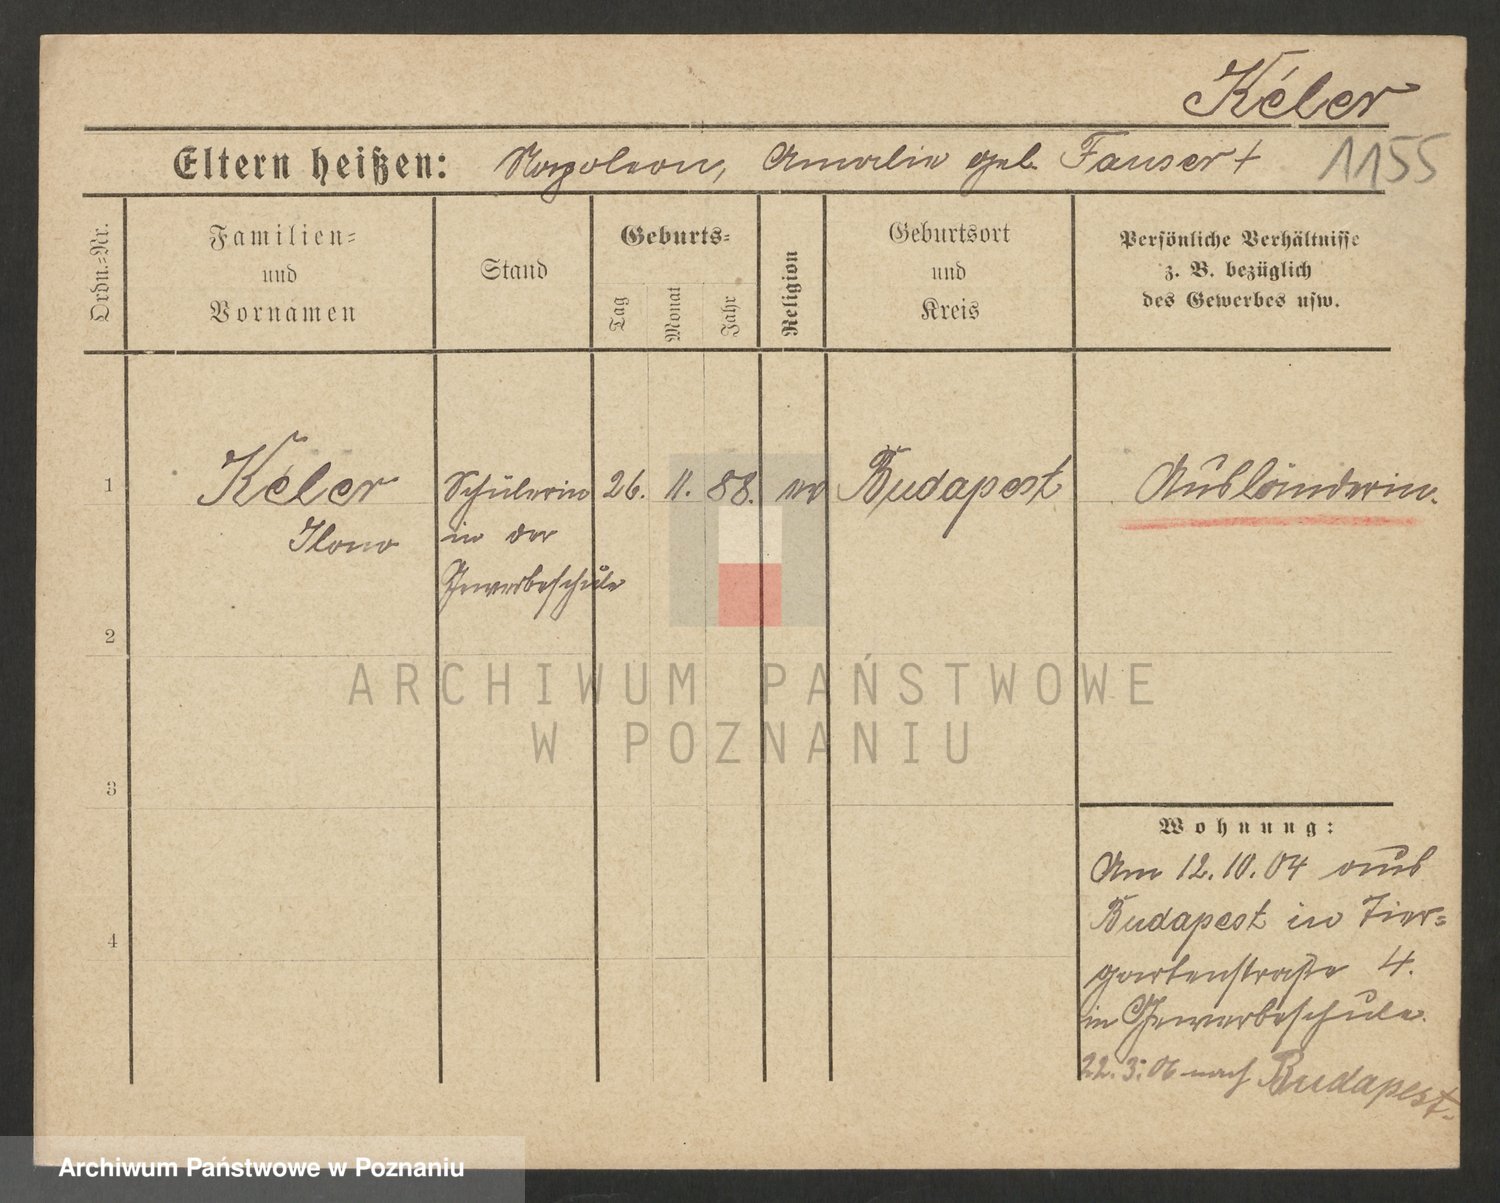 Kéler
Eltern heißen: Napoleon, Amalie geb. Fauser †
1155
Ordn.-Nr.
Familien-
und
Vornamen
Stand
Geburts-
Tag
Monat
Jahr
Religion
Geburtsort
und
Kreis
Persönliche Verhältnisse
z. B. bezüglich
des Gewerbes usw.
1
Kéler
Ilona
Schülerin
in der
Gewerbeschule
26. 11. 88. ev Budapest
Ausländerin.
2
3
4
Wohnung:
Am 12.10.04 aus
Budapest in Tier-
gartenstraße 4.
in Gewerbeschule.
22.3.06 nach Budapest.
ARCHIWUM PAŃSTWOWE
W POZNANIU
Archiwum Państwowe w Poznaniu